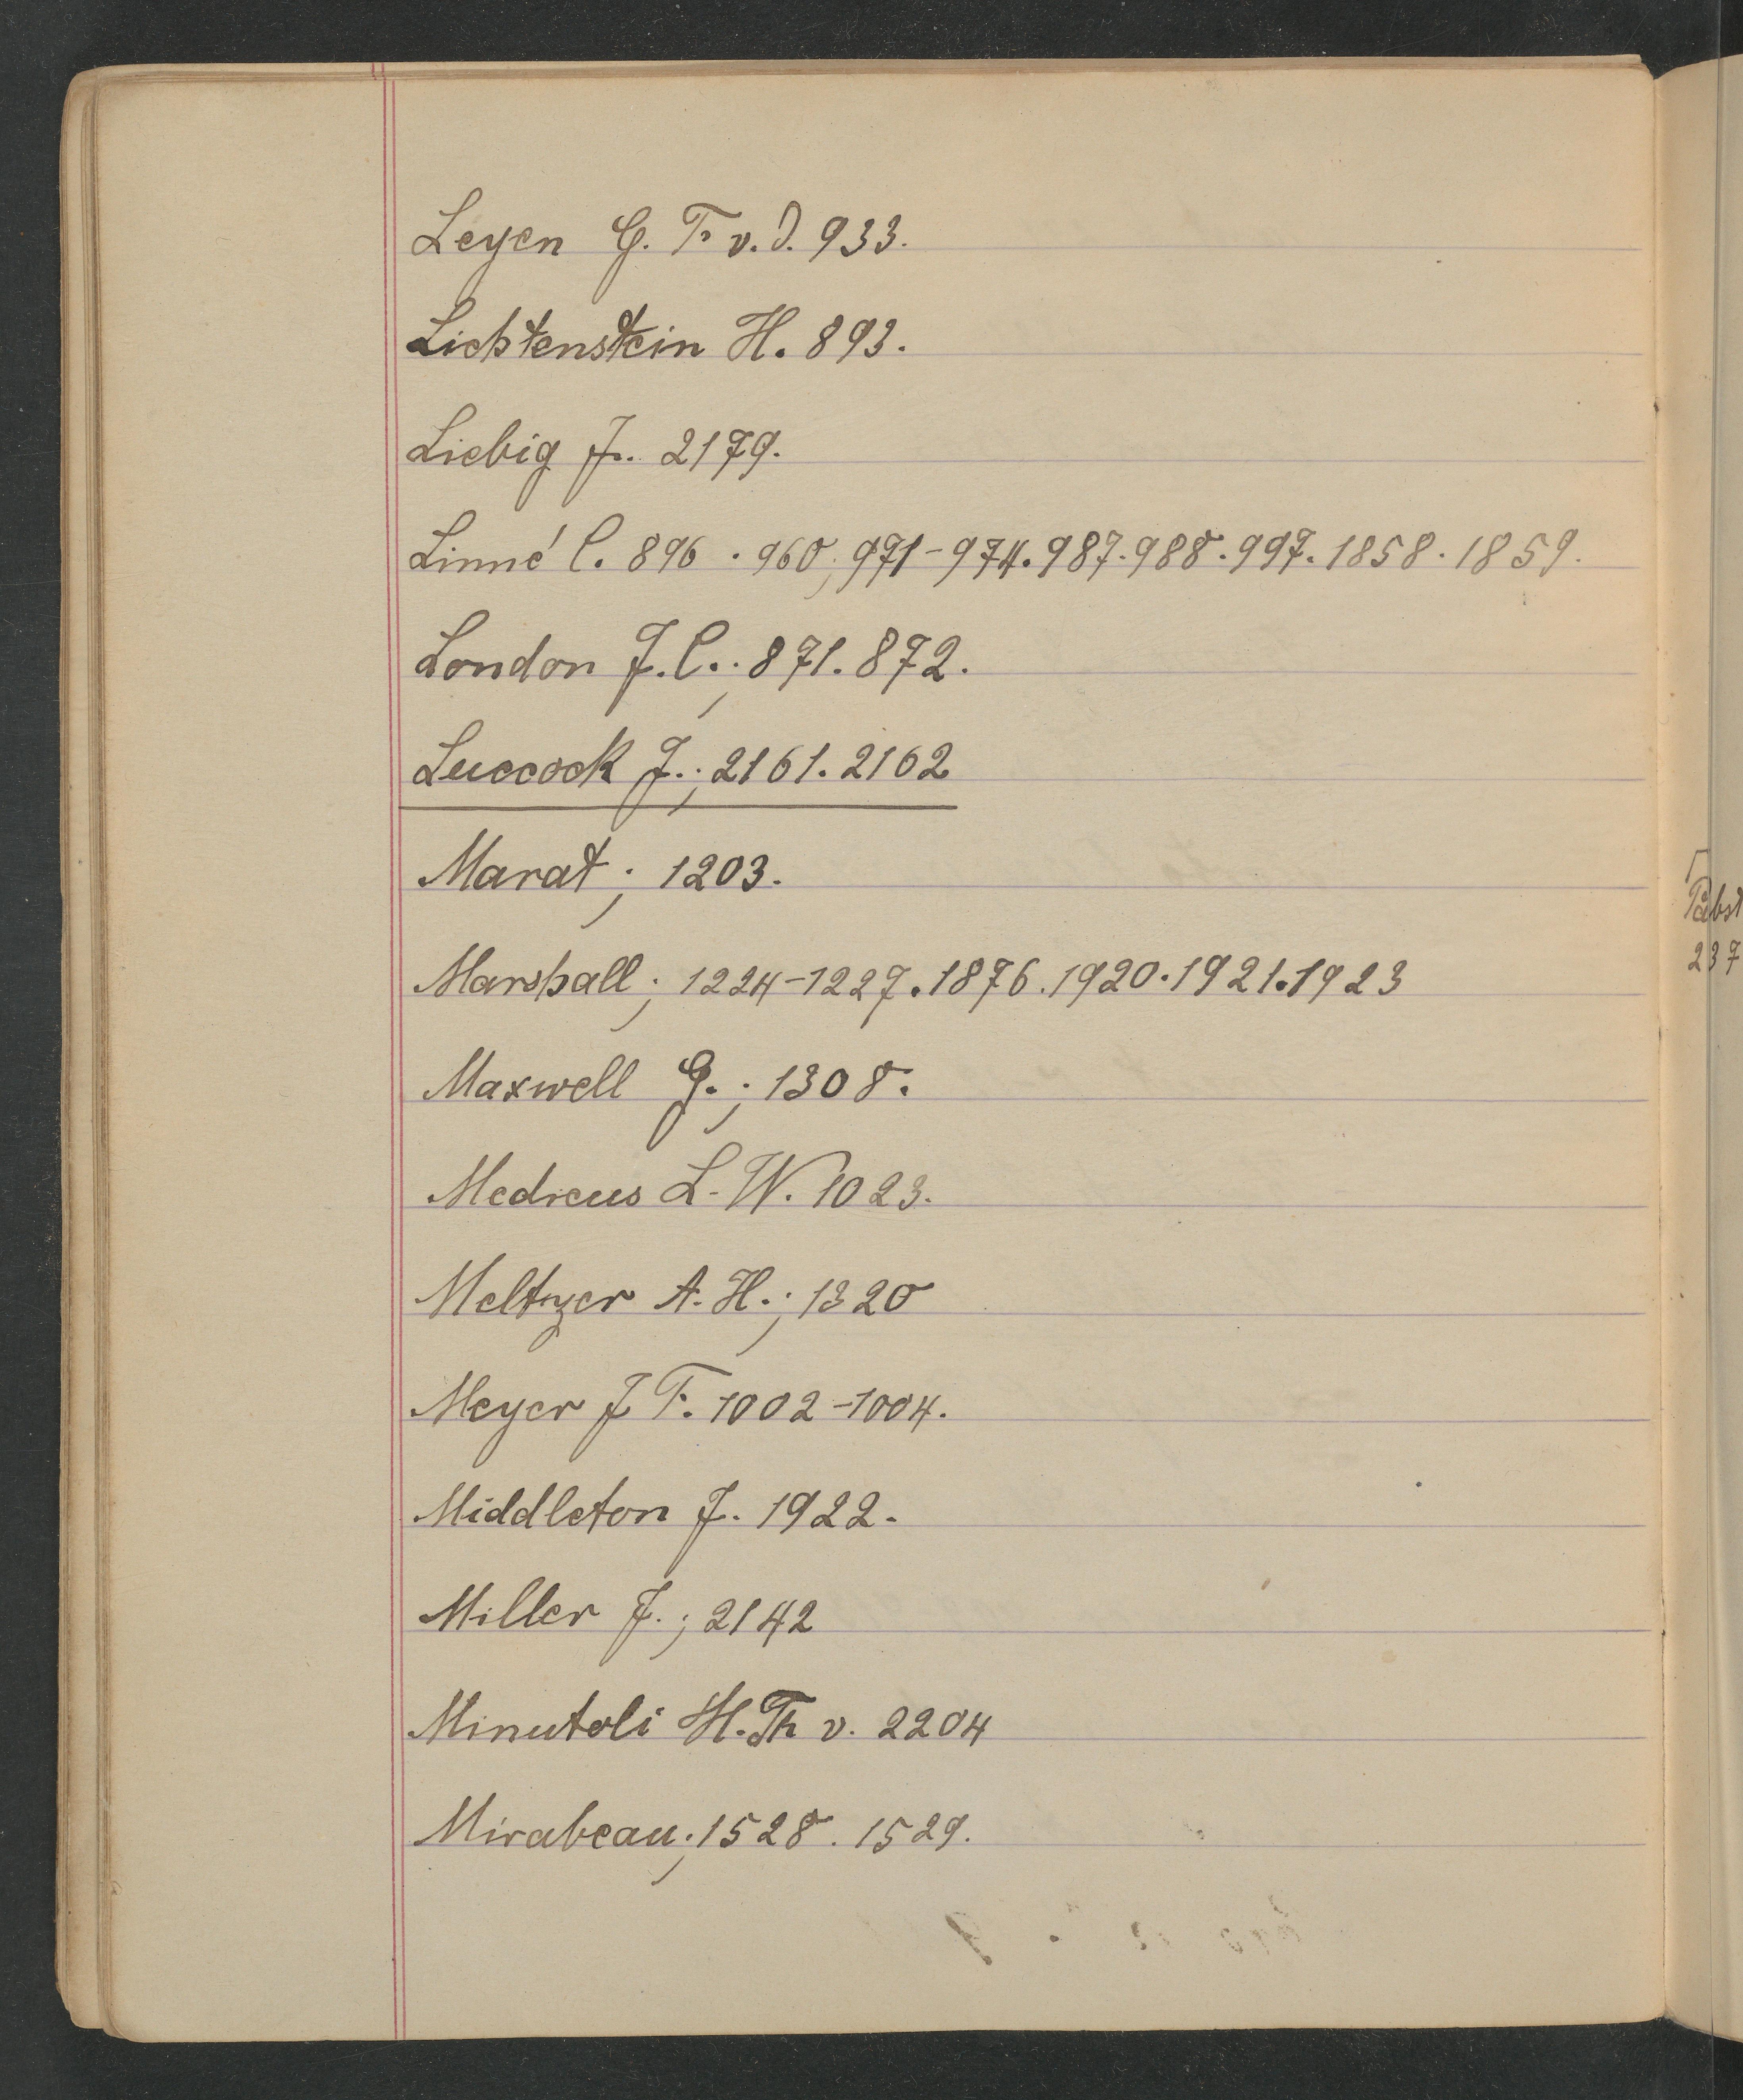 Leyen G. F. v. d. 933.
Lichtenstein H. 893.
Liebig J. 2179.
Linné C. 896 . 960; 971-974. 987. 988. 997. 1858. 1859.
London J. C.; 871. 872.
Luccock J.; 2161. 2162
Marat; 1203.
Marshall; 1224-1227. 1876. 1920. 1921. 1923
Maxwell G.; 1308.
Medicus L. W. 1023.
Meltzer A. H.; 1320
Meyer J F. 1002-1004.
Middleton J. 1922.
Miller J.; 2142
Minutoli H. Th v. 2204
Mirabeau; 1528. 1529.
Pabst
237